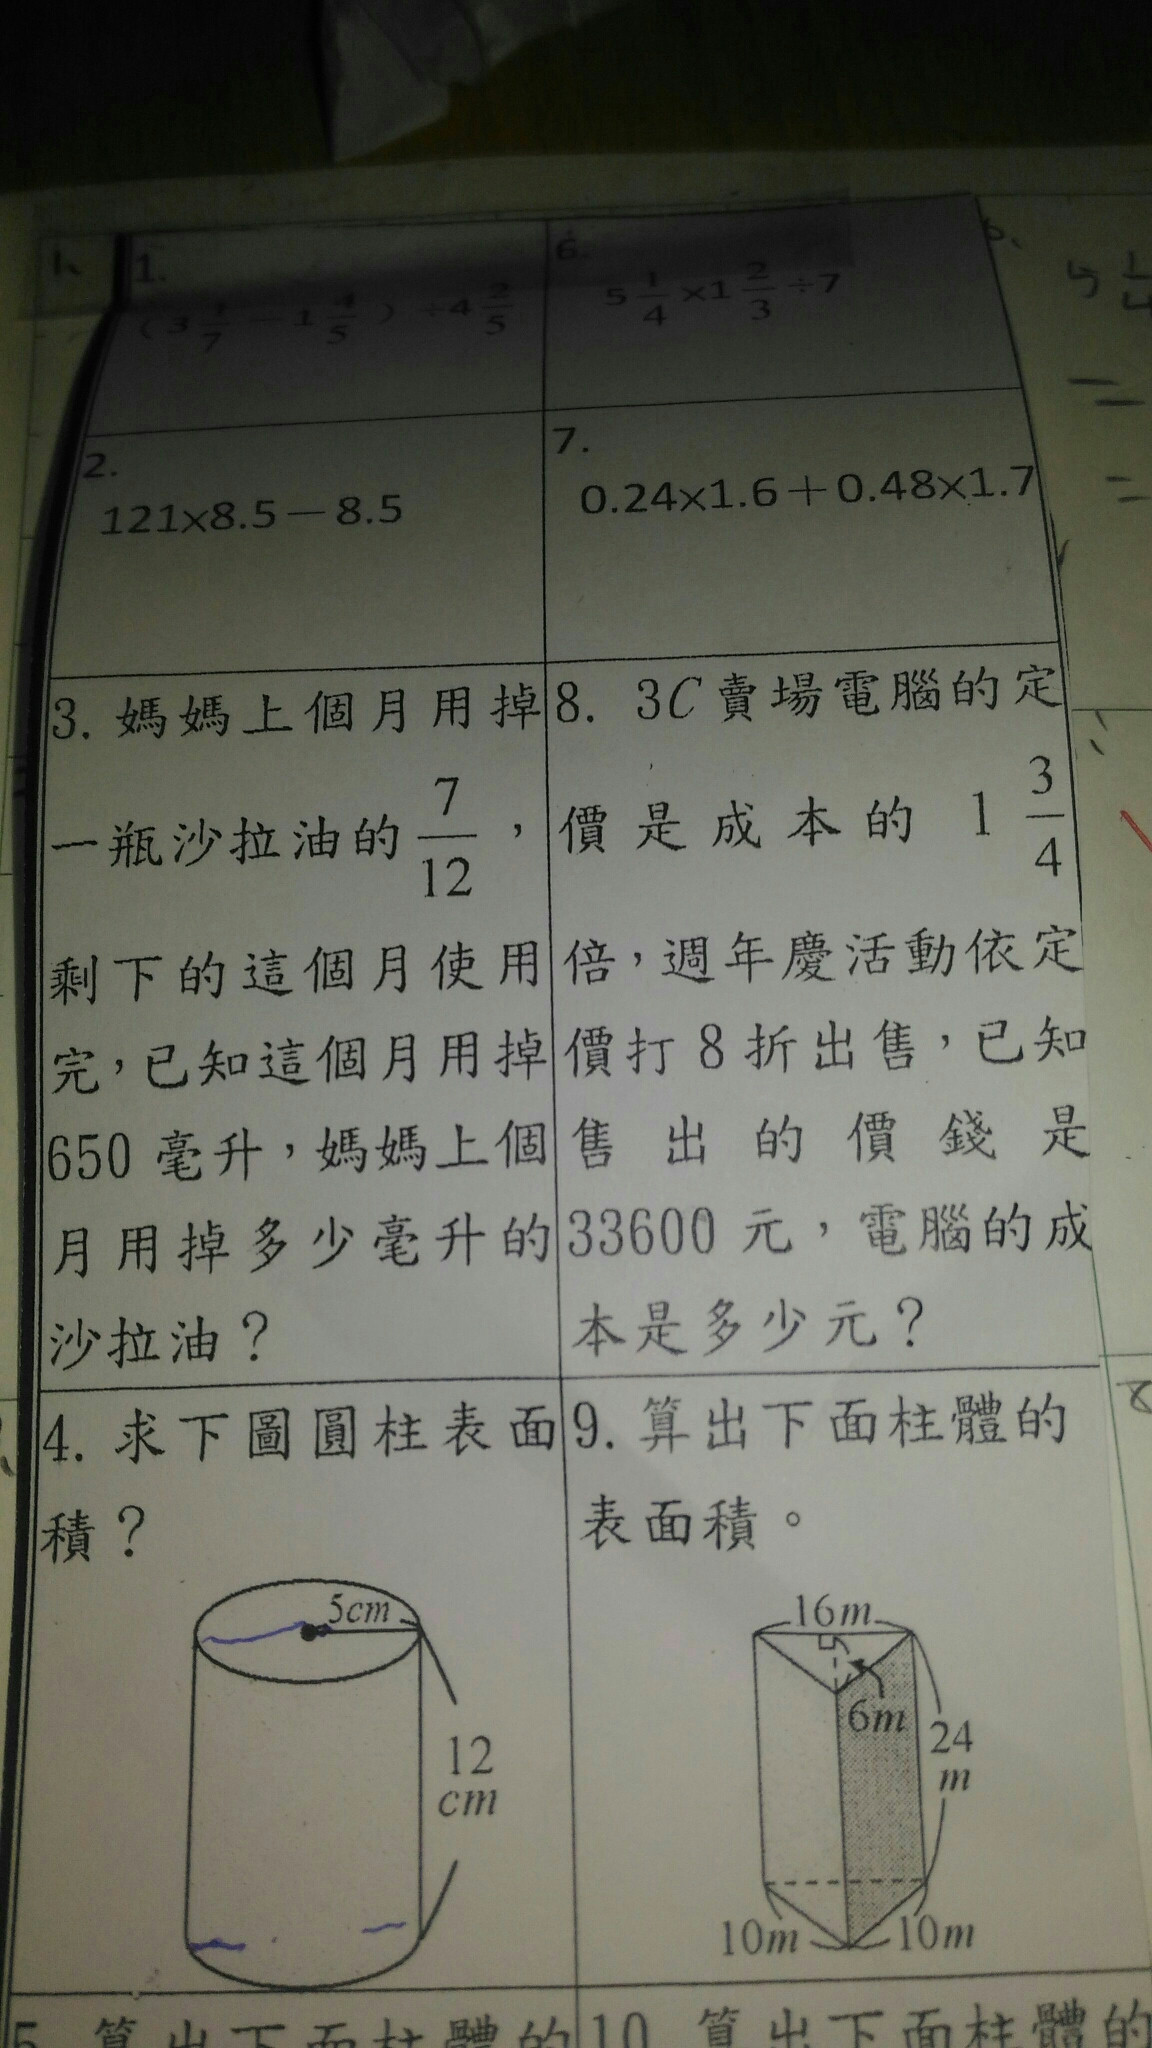 1.
6.
5 1/4 ×1 2/3 ÷7
2.
121×8.5－8.5
7.
0.24×1.6＋0.48×1.7
3. 媽媽上個月用掉
一瓶沙拉油的 7/12 ，
剩下的這個月使用
完，已知這個月用掉
650 毫升，媽媽上個
月用掉多少毫升的
沙拉油？
8. 3C 賣場電腦的定
價是成本的 1 3/4
倍，週年慶活動依定
價打 8 折出售，已知
售出的價錢是
33600 元，電腦的成
本是多少元？
4. 求下圖圓柱表面
積？
5cm
12
cm
9. 算出下面柱體的
表面積。
16m
6m
24
m
10m
10m
5. 算出下面柱體的
10. 算出下面柱體的